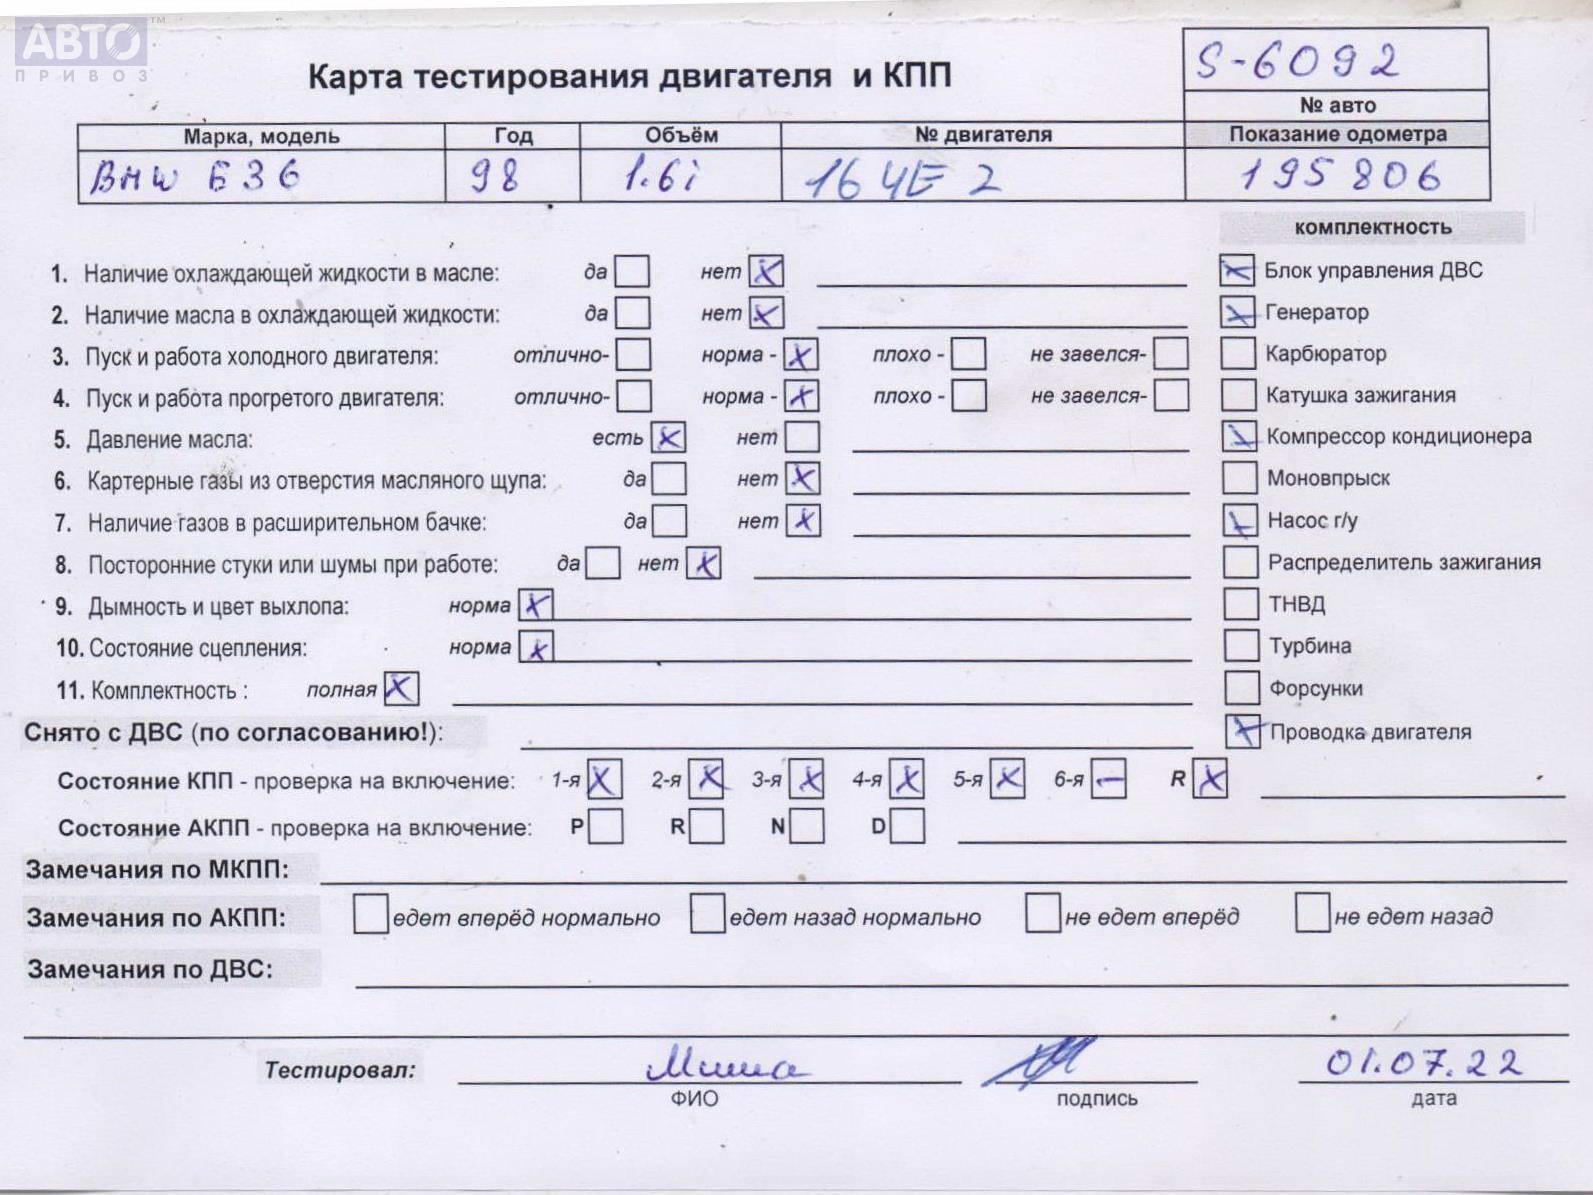 АВТО ТМ
ПРИВОЗ
Карта тестирования двигателя и КПП
S-6092
№ авто
Марка, модель Год Объём № двигателя Показание одометра
BMW E36 98 1.6i 164E2 195806
комплектность
1. Наличие охлаждающей жидкости в масле: да нет X
Блок управления ДВС
2. Наличие масла в охлаждающей жидкости: да нет X
Генератор
3. Пуск и работа холодного двигателя: отлично- норма - X плохо - не завелся-
Карбюратор
4. Пуск и работа прогретого двигателя: отлично- норма - X плохо - не завелся-
Катушка зажигания
5. Давление масла: есть X нет
Компрессор кондиционера
6. Картерные газы из отверстия масляного щупа: да нет X
Моновпрыск
7. Наличие газов в расширительном бачке: да нет X
Насос г/у
8. Посторонние стуки или шумы при работе: да нет X
Распределитель зажигания
9. Дымность и цвет выхлопа: норма X
ТНВД
10. Состояние сцепления: норма X
Турбина
11. Комплектность : полная X
Форсунки
Снято с ДВС (по согласованию!):
Проводка двигателя
Состояние КПП - проверка на включение: 1-я X 2-я X 3-я X 4-я X 5-я X 6-я – R X
Состояние АКПП - проверка на включение: P R N D
Замечания по МКПП:
Замечания по АКПП: едет вперёд нормально едет назад нормально не едет вперёд не едет назад
Замечания по ДВС:
Тестировал: Миша 01.07.22
ФИО подпись дата